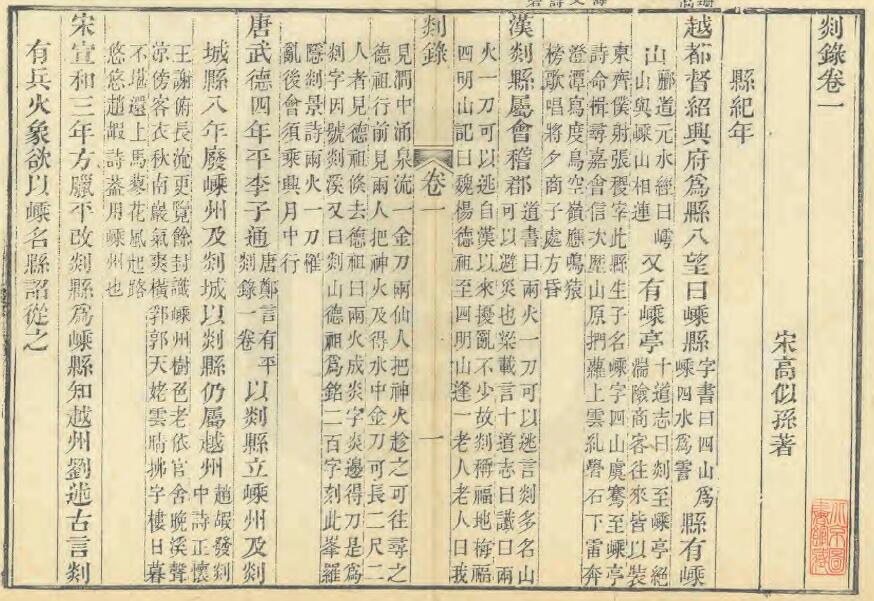 剡錄卷一
宋高似孫著
縣紀年
越都督紹興府爲縣八望曰嵊縣字書曰四山爲嵊四水爲霅縣有嵊
山酈道元水經曰崿山與嵊山相連又有嵊亭十道志曰剡至嵊亭絕湍險商客往來皆以裝
東齊僕射張稷宰此縣生子名嵊字四山虞騫至嵊亭
詩命楫尋嘉會信次歷山原捫蘿上雲糺礐石下雷奔
澄潭寫度鳥空嶺應鳴猿
榜歌唱將夕商子處方昏
漢剡縣屬會稽郡道書曰兩火一刀可以逃言剡多名山可以避災也梁載言十道志曰讖曰兩
火一刀可以逃自漢以來擾亂不少故剡稱福地梅福
四明山記曰魏楊德祖至四明山逢一老人老人曰我
剡錄 卷一 一
見澗中涌泉流一金刀兩仙人把神火趁之可往尋之
德祖行前見兩人把神火及得水中金刀可長二尺二
人者見德祖倏去德祖曰兩火成炎字炎邊得刀是爲
剡字因號剡溪又曰剡山德祖爲銘二百字刻此峯羅
隱剡景詩兩火一刀罹
亂後會須乘興月中行
唐武德四年平李子通唐鄭言有平剡錄一卷以剡縣立嵊州及剡
城縣八年廢嵊州及剡城以剡縣仍屬越州趙嘏發剡中詩正懷
王謝俯長流更覽餘封識嵊州樹色老依官舍晚溪聲
凉傍客衣秋南巖氣爽橫郛郭天姥雲晴拂字樓日暮
不堪還上馬蓼花風起路
悠悠趙嘏詩蓋用嵊州也
宋宣和三年方臘平改剡縣爲嵊縣知越州劉述古言剡
有兵火象欲以嵊名縣詔從之